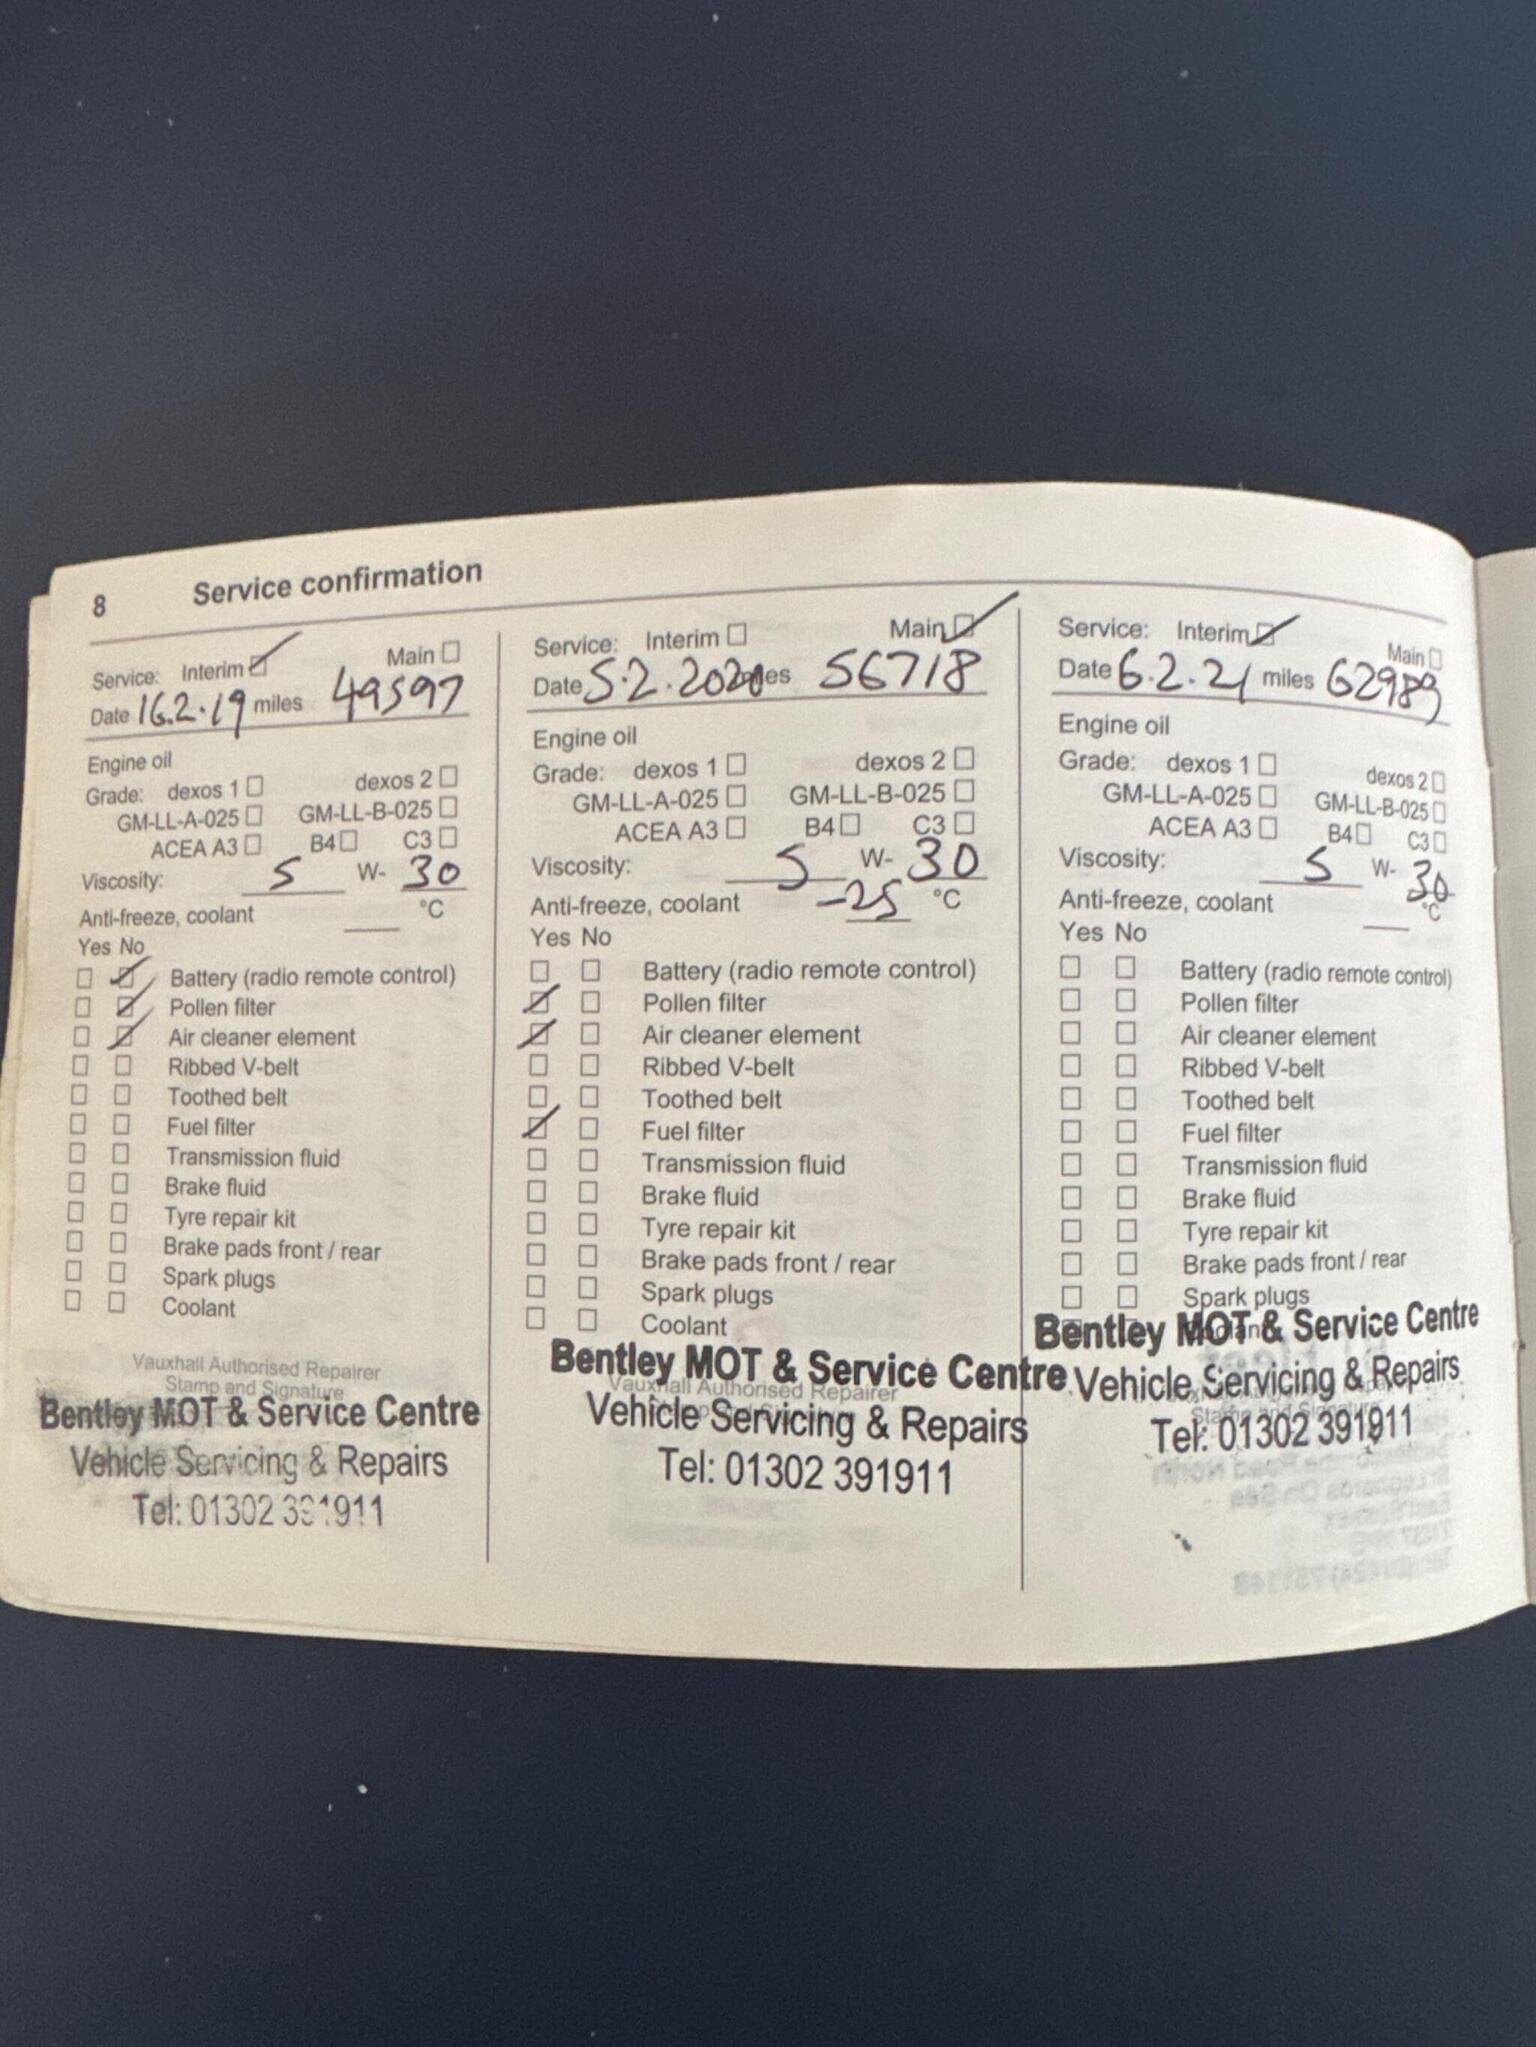 8 Service confirmation
Service: Interim Main
Date 16.2.19 miles 49597
Engine oil
Grade: dexos 1 dexos 2
GM-LL-A-025 GM-LL-B-025
ACEA A3 B4 C3
Viscosity: 5 W- 30
Anti-freeze, coolant °C
Yes No
Battery (radio remote control)
Pollen filter
Air cleaner element
Ribbed V-belt
Toothed belt
Fuel filter
Transmission fluid
Brake fluid
Tyre repair kit
Brake pads front / rear
Spark plugs
Coolant
Vauxhall Authorised Repairer
Stamp and Signature
Bentley MOT & Service Centre
Vehicle Servicing & Repairs
Tel: 01302 391911
Service: Interim Main
Date 5.2.2020 miles 56718
Engine oil
Grade: dexos 1 dexos 2
GM-LL-A-025 GM-LL-B-025
ACEA A3 B4 C3
Viscosity: 5 W- 30
Anti-freeze, coolant -25 °C
Yes No
Battery (radio remote control)
Pollen filter
Air cleaner element
Ribbed V-belt
Toothed belt
Fuel filter
Transmission fluid
Brake fluid
Tyre repair kit
Brake pads front / rear
Spark plugs
Coolant
Bentley MOT & Service Centre
Vauxhall Authorised Repairer
Vehicle Servicing & Repairs
Tel: 01302 391911
Service: Interim Main
Date 6.2.21 miles 62989
Engine oil
Grade: dexos 1 dexos 2
GM-LL-A-025 GM-LL-B-025
ACEA A3 B4 C3
Viscosity: 5 W- 30
Anti-freeze, coolant °C
Yes No
Battery (radio remote control)
Pollen filter
Air cleaner element
Ribbed V-belt
Toothed belt
Fuel filter
Transmission fluid
Brake fluid
Tyre repair kit
Brake pads front / rear
Spark plugs
Bentley MOT & Service Centre
Vehicle Servicing & Repairs
Stamp and Signature
Tel: 01302 391911